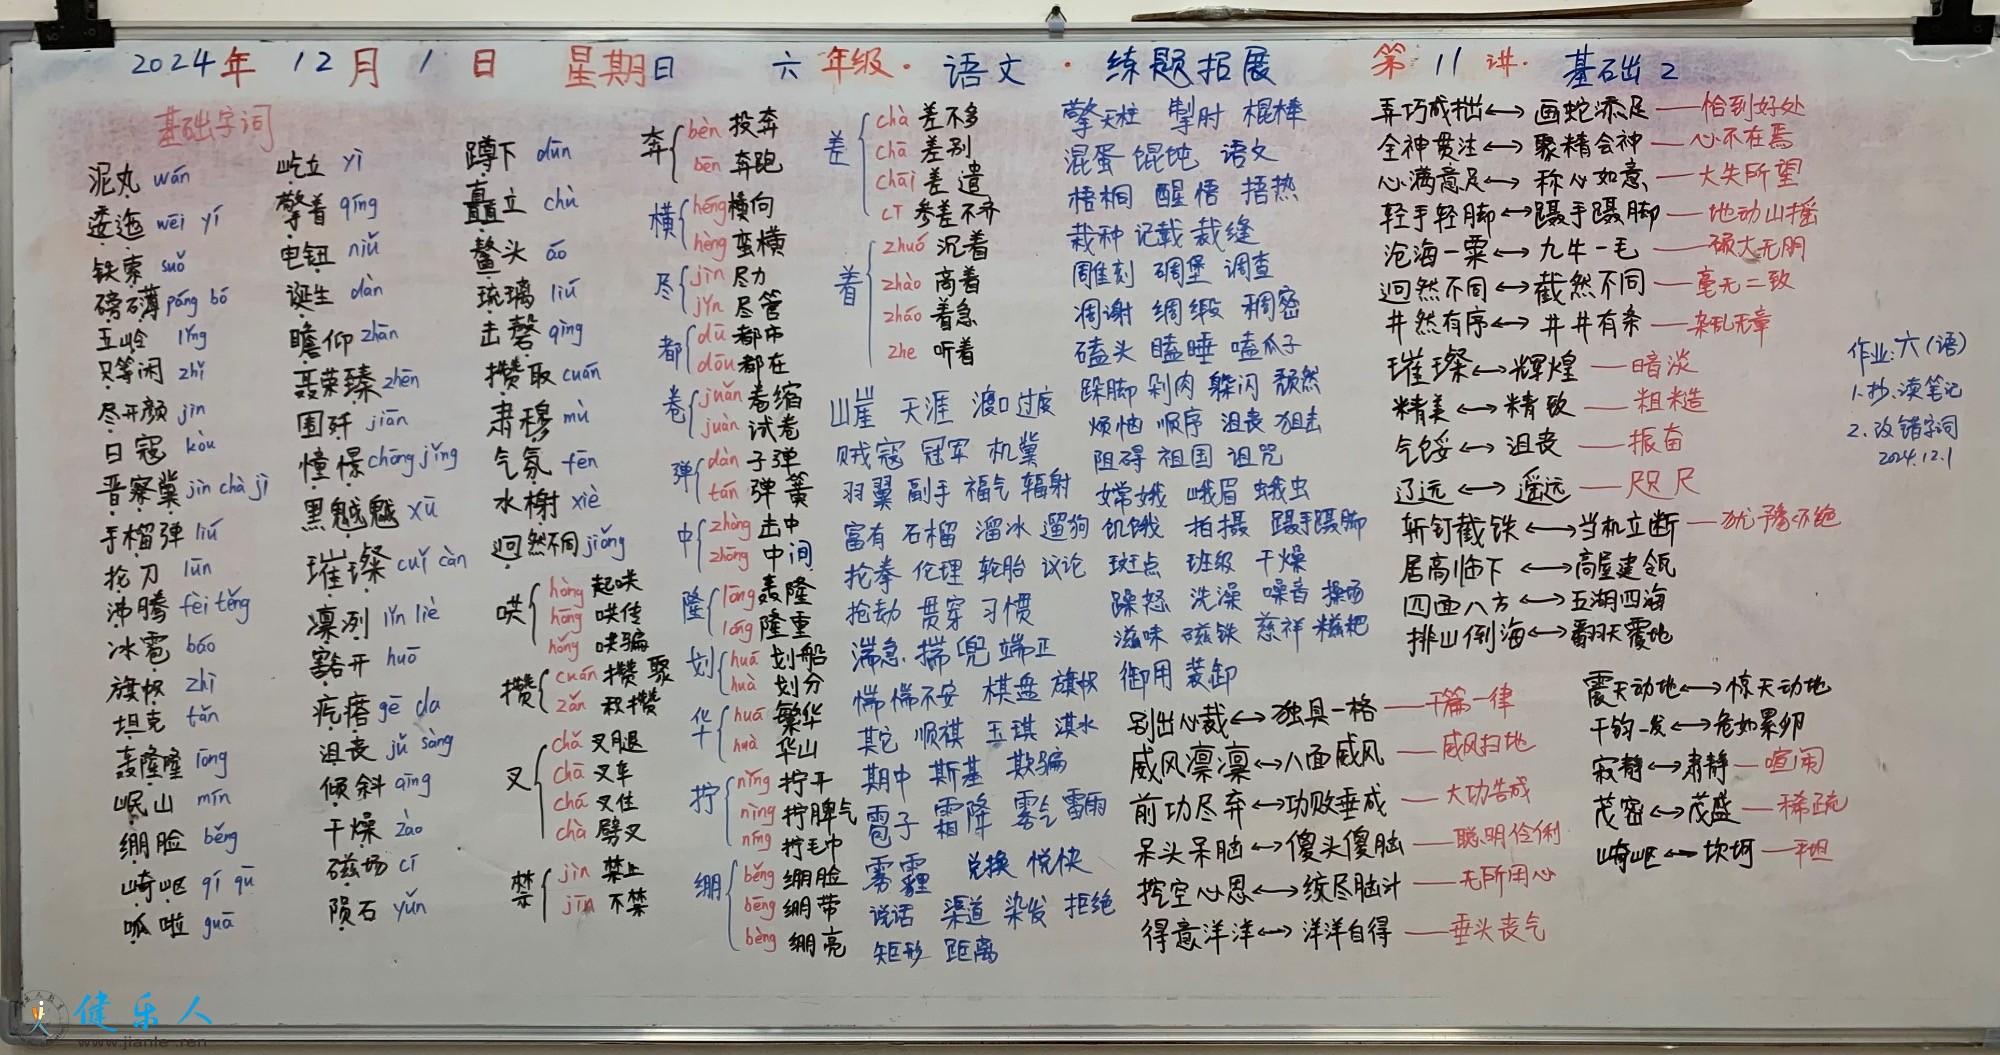 2024年 12月 1日 星期日 六年级·语文·练题拓展 第11讲·基础2
基础字词
泥丸 wán
逶迤 wēi yí
铁索 suǒ
磅礴 páng bó
五岭 lǐng
只等闲 zhǐ
尽开颜 jìn
日寇 kòu
晋察冀 jìn chà jì
手榴弹 liú
抡刀 lūn
沸腾 fèi téng
冰雹 báo
旗帜 zhì
坦克 tǎn
轰隆隆 lōng
岷山 mín
绷脸 běng
崎岖 qí qū
呱啦 guā
屹立 yì
擎着 qíng
电钮 niǔ
诞生 dàn
瞻仰 zhān
聂荣臻 zhēn
围歼 jiān
憧憬 chōng jǐng
黑魆魆 xū
璀璨 cuǐ càn
凛冽 lǐn liè
豁开 huō
疙瘩 gē da
沮丧 jǔ sàng
倾斜 qīng
干燥 zào
磁场 cí
陨石 yǔn
蹲下 dūn
矗立 chù
鳌头 áo
琉璃 liú
击磬 qìng
攒取 cuán
肃穆 mù
气氛 fēn
水榭 xiè
迥然不同 jiǒng
哄 hòng 起哄
hōng 哄传
hǒng 哄骗
攒 cuán 攒聚
zǎn 积攒
叉 chǎ 叉腿
chā 叉车
chá 叉住
chà 劈叉
禁 jìn 禁止
jīn 不禁
奔 bèn 投奔
bēn 奔跑
横 héng 横向
hèng 蛮横
尽 jìn 尽力
jǐn 尽管
都 dū 都市
dōu 都在
卷 juǎn 卷缩
juàn 试卷
弹 dàn 子弹
tán 弹簧
中 zhòng 击中
zhōng 中间
隆 lōng 轰隆
lóng 隆重
划 huá 划船
huà 划分
华 huá 繁华
huà 华山
拧 nǐng 拧开
nìng 拧脾气
níng 拧毛巾
绷 běng 绷脸
bēng 绷带
bèng 绷亮
差 chà 差不多
chā 差别
chāi 差遣
cī 参差不齐
着 zhuó 沉着
zhāo 高着
zháo 着急
zhe 听着
山崖 天涯 渡口 过度
贼寇 冠军 机冀
羽翼 副手 福气 辐射
富有 石榴 溜冰 遛狗
抡拳 伦理 轮胎 议论
抢劫 贯穿 习惯
湍急 揣兜 端正
惴惴不安 棋盘 旗帜
其它 顺祺 玉琪 淇水
期中 斯基 欺骗
雹子 霜降 雾气 雷雨
雾霾 兑换 悦快
说话 渠道 染发 拒绝
矩形 距离
擎天柱 掣肘 棍棒
混蛋 馄饨 语文
梧桐 醒悟 捂热
栽种 记载 裁缝
雕刻 碉堡 调查
凋谢 绸缎 稠密
磕头 瞌睡 嗑瓜子
跺脚 剁肉 躲闪 颓然
烦恼 顺序 沮丧 狙击
阻碍 祖国 诅咒
嫦娥 峨眉 蛾虫
饥饿 拍摄 蹑手蹑脚
斑点 班级 干燥
躁怒 洗澡 噪音 操场
滋味 磁铁 慈祥 糍粑
御用 装卸
别出心裁⟷独具一格——千篇一律
威风凛凛⟷八面威风——威风扫地
前功尽弃⟷功败垂成——大功告成
呆头呆脑⟷傻头傻脑——聪明伶俐
挖空心思⟷绞尽脑汁——无所用心
得意洋洋⟷洋洋自得——垂头丧气
弄巧成拙⟷画蛇添足——恰到好处
全神贯注⟷聚精会神——心不在焉
心满意足⟷称心如意——大失所望
轻手轻脚⟷蹑手蹑脚——地动山摇
沧海一粟⟷九牛一毛——硕大无朋
迥然不同⟷截然不同——毫无二致
井然有序⟷井井有条——杂乱无章
璀璨⟷辉煌——暗淡
精美⟷精致——粗糙
气馁⟷沮丧——振奋
辽远⟷遥远——咫尺
斩钉截铁⟷当机立断——犹豫不绝
居高临下⟷高屋建瓴
四面八方⟷五湖四海
排山倒海⟷翻天覆地
震天动地⟷惊天动地
千钧一发⟷危如累卵
寂静⟷肃静——喧闹
茂密⟷茂盛——稀疏
崎岖⟷坎坷——平坦
作业:六(语)
1.抄、读笔记
2.改错字词
2024.12.1
健乐人
www.jianle.ren